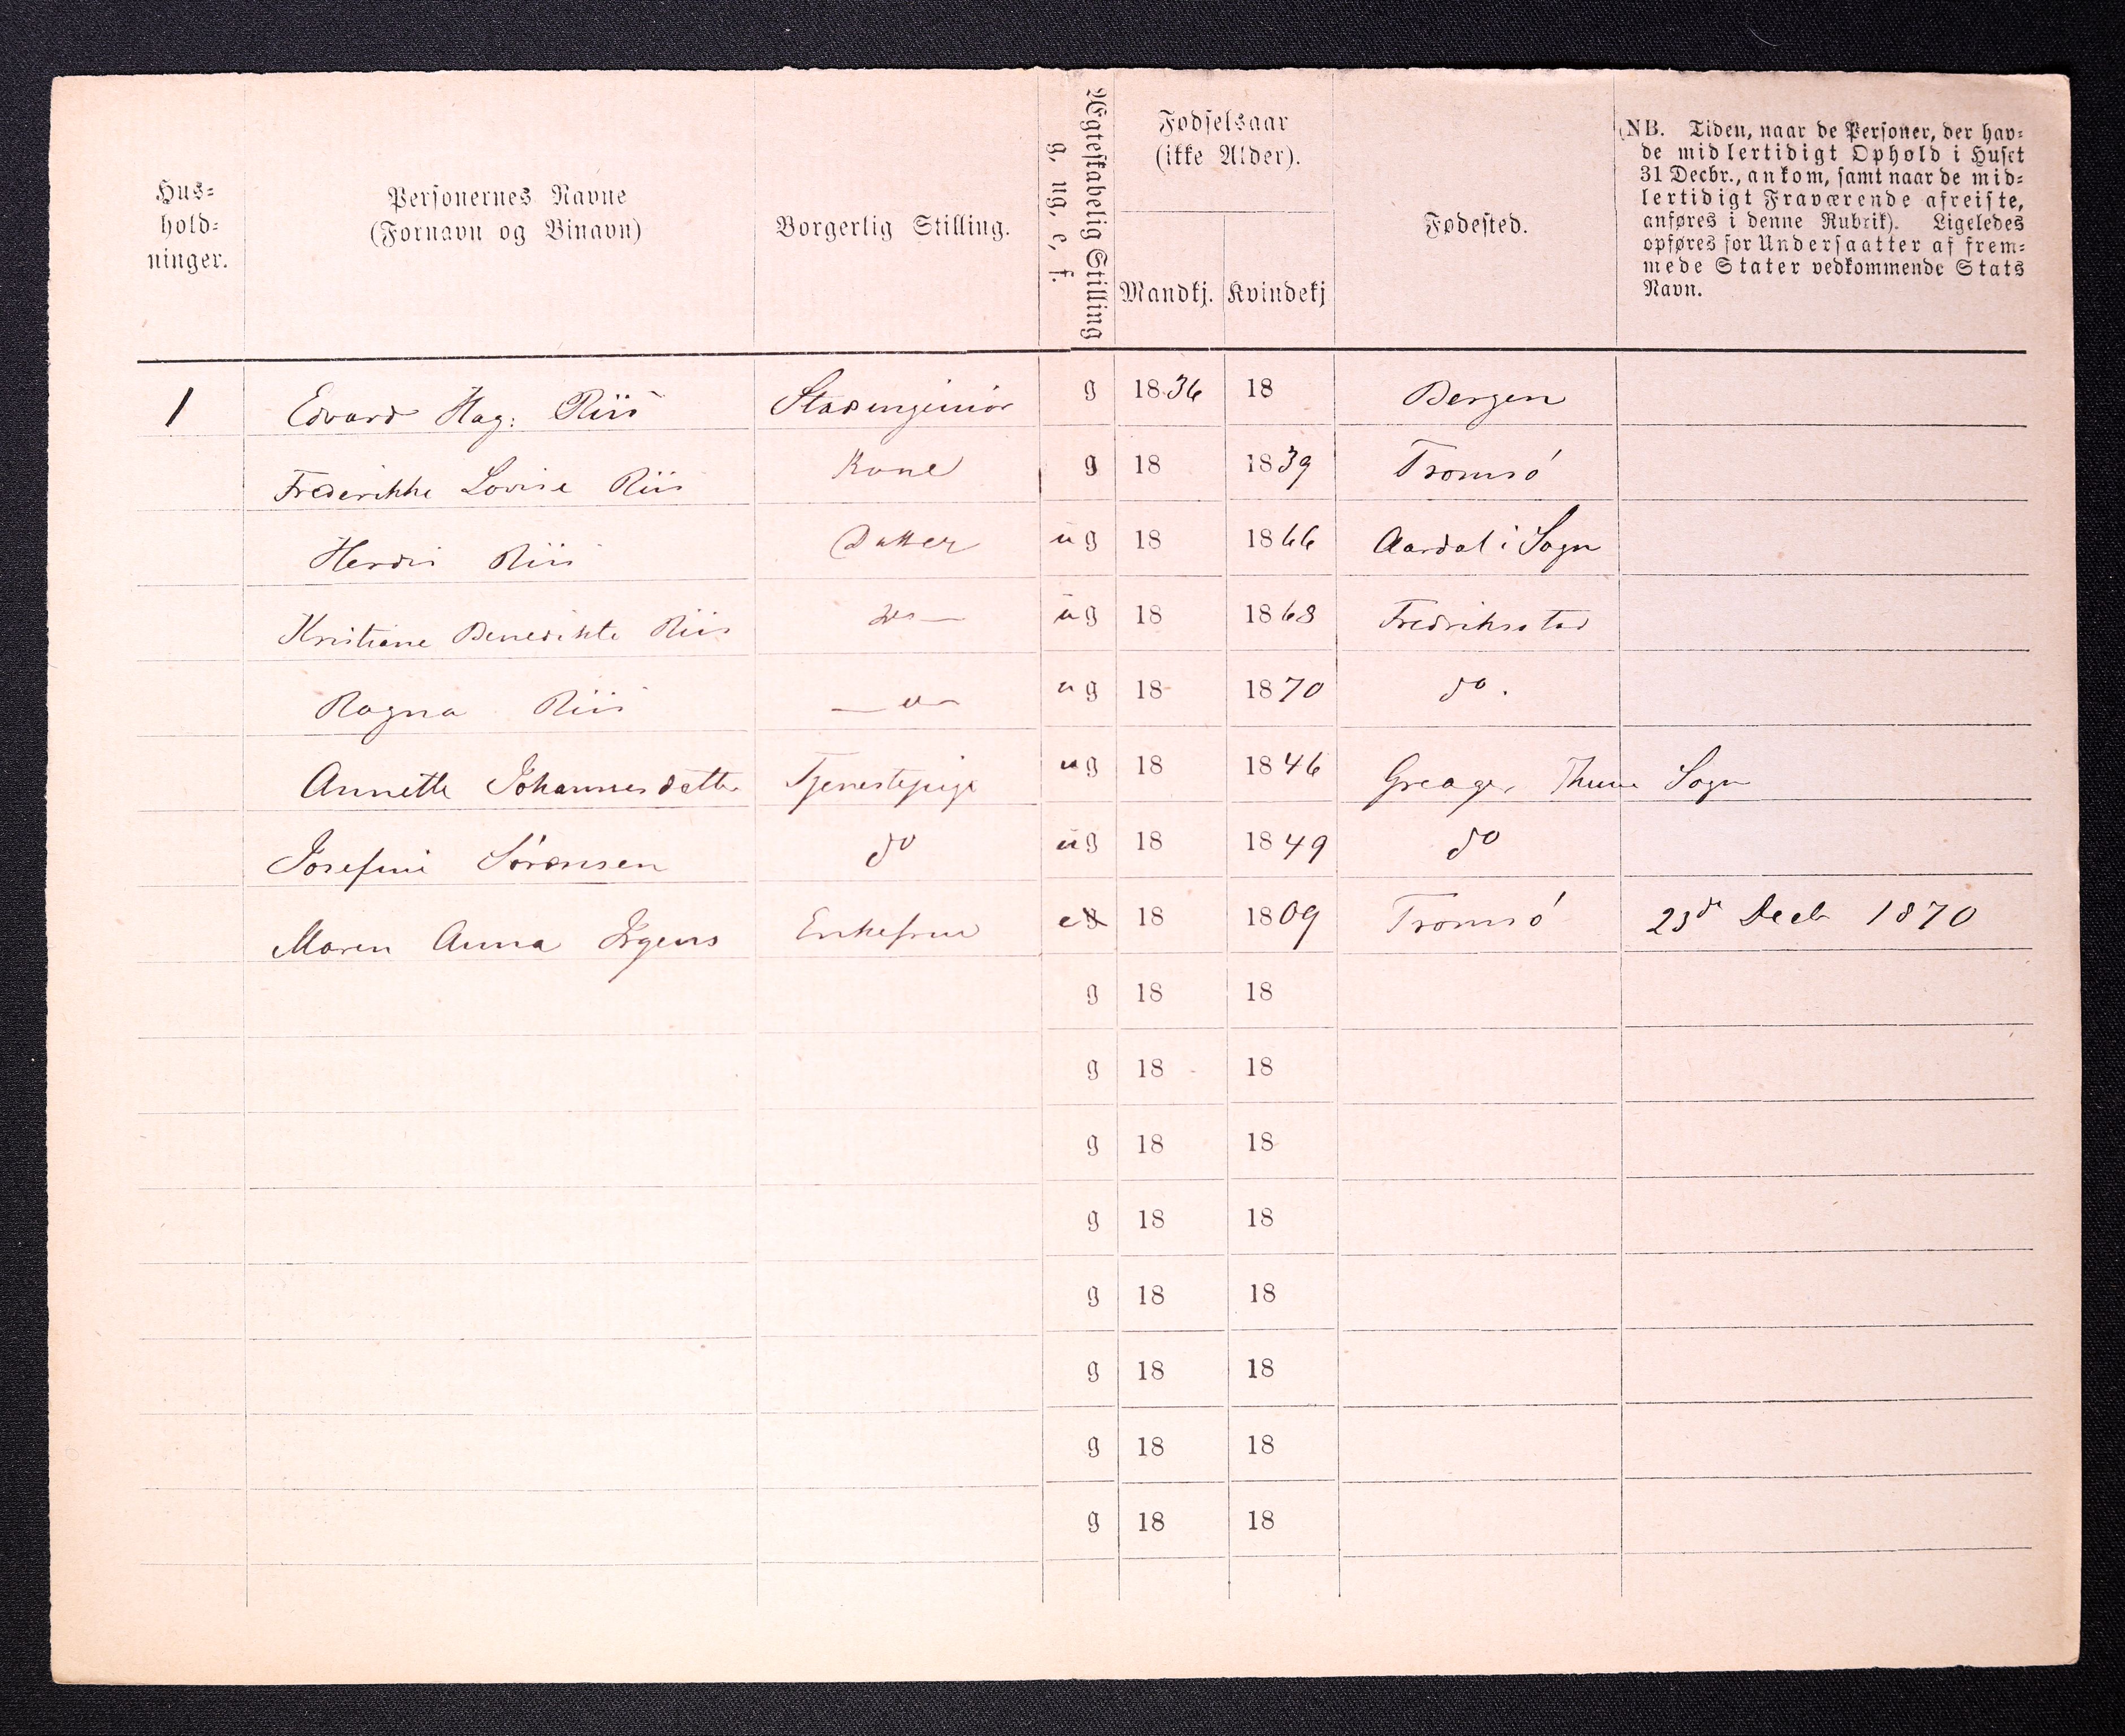 Hus=
hold=
ninger.
Personernes Navne
(Fornavn og Binavn)
Borgerlig Stilling.
Ægteskabelig Stilling
g, ug, e, f.
Fødselsaar
(ikke Alder).
Mandkj. Kvindekj
Fødested.
(NB. Tiden, naar de Personer, der hav=
de midlertidigt Ophold i Huset
31 Decbr., ankom, samt naar de mid=
lertidigt Fraværende afreiste,
anføres i denne Rubrik). Ligeledes
opføres for Undersaatter af frem=
mede Stater vedkommende Stats
Navn.
1 Edvard Hag: Riis Stadsingeniør g 1836 18 Bergen
Frederikke Lovise Riis Kone g 18 1839 Tromsø
Herdis Riis Datter ug 18 1866 Aardal i Sogn
Kristiane Benedikte Riis do — ug 18 1868 Fredriksstad
Ragna Riis — " — ug 18 1870 do.
Annette Johannesdatter Tjenestepige ug 18 1846 Greager Thune Sogn
Josefine Sørensen do ug 18 1849 do
Maren Anna Irgens Enkefrue e 18 1809 Tromsø 23de Decb 1870
g 18 18
g 18 18
g 18 18
g 18 18
g 18 18
g 18 18
g 18 18
g 18 18